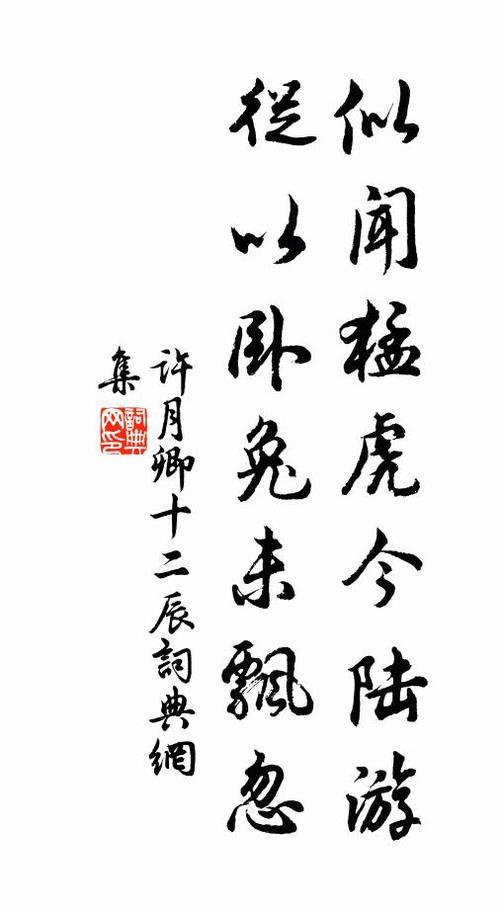 似闻猛虎今陆游
从以卧兔未飘忽
許月卿十二辰詞典網
集
詞典网印